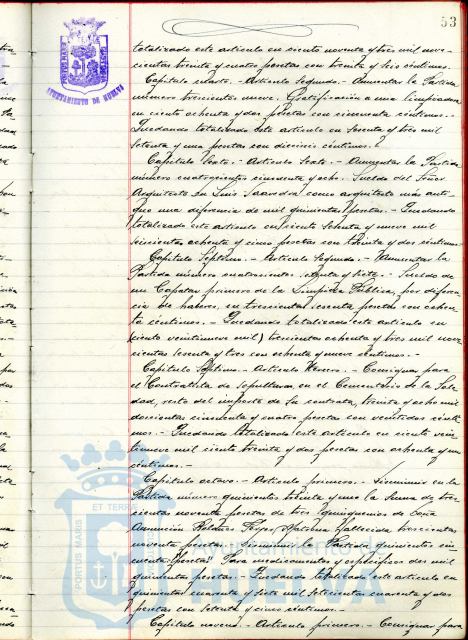 53
AYUNTAMIENTO DE HUELVA
totalizado este artículo en ciento noventa y tres mil nove-
cientas treinta y cuatro pesetas con treinta y seis céntimos.
Capítulo cuarto. - Artículo Segundo. - Aumentar la Partida
número trescientos nueve. Gratificación a una limpiadora
en ciento ochenta y dos pesetas con cincuenta céntimos. -
Quedando totalizado este artículo en setenta y tres mil
setenta y una pesetas con dieciseis céntimos. -
Capítulo Sexto. - Artículo Sexto. - Aumentar la Partida
número cuatrocientos cincuenta y ocho. Sueldo del Señor
Arquitecto Don Luis Saavedra, como arquitecto más anti-
guo una diferencia de mil quinientas pesetas. - Quedando
totalizado este artículo en ciento setenta y nueve mil
seiscientas ochenta y cinco pesetas con treinta y dos céntimos
Capítulo Séptimo. - Artículo Segundo. - Aumentar la
Partida número cuatrocientos setenta y siete. - Sueldo de
un Capataz primero de la Limpieza Pública, por diferen
cia de haberes, en trescientas sesenta pesetas con ochen
ta céntimos. - Quedando totalizado este artículo en
(ciento veintinueve mil) trescientas ochenta y tres mil nove
cientas sesenta y tres con ochenta y nueve céntimos. -
Capítulo Séptimo. - Artículo Tercero. - Consignar para
el Contratista de Sepulturas en el Cementerio de la Sole
dad, resto del importe de su contrata, treinta y ocho mil
doscientas cincuenta y cuatro pesetas con veintidós cénti
mos. - Quedando totalizado este artículo en ciento vein
tinueve mil ciento treinta y dos pesetas con ochenta y un
céntimos. -
Capítulo octavo. - Artículo primero. - Disminuir en la
Partida número quinientos treinta y uno la suma de tres
cientas noventa pesetas de tres quinquenios de Doña
Asunción Roldán Matrona fallecida trescientas
noventa pesetas. - quinientos
cuenta pesetas. Para medicamentos y específicos dos mil
quinientas pesetas. Quedando totalizado este artículo en
quinientas cuarenta y siete mil setecientas cuarenta y dos
pesetas con setenta y cinco céntimos. -
Capítulo noveno. - Artículo primero. - Consignar para
ET TERRAE
PORTUS MARIS
Ayuntamiento de
HUELVA